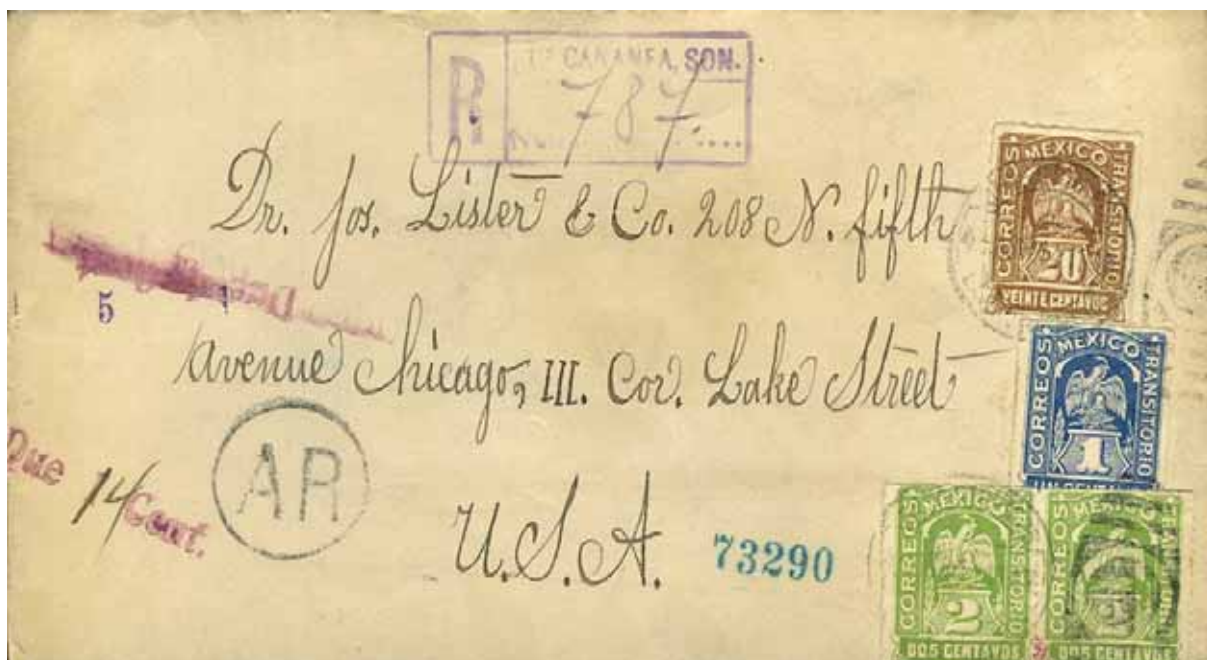 R
CANANEA, SON.
787
Dr. Jos. Lister & Co. 208 N. fifth
avenue Chicago, Ill. Cor. Lake Street
U.S.A.
5
Due 14 Cent.
AR
73290
CORREOS MEXICO TRANSITORIO
20
VEINTE CENTAVOS
CORREOS MEXICO TRANSITORIO
1
UN CENTAVO
CORREOS MEXICO TRANSITORIO
2
DOS CENTAVOS
CORREOS MEXICO
2
DOS CENTAVOS